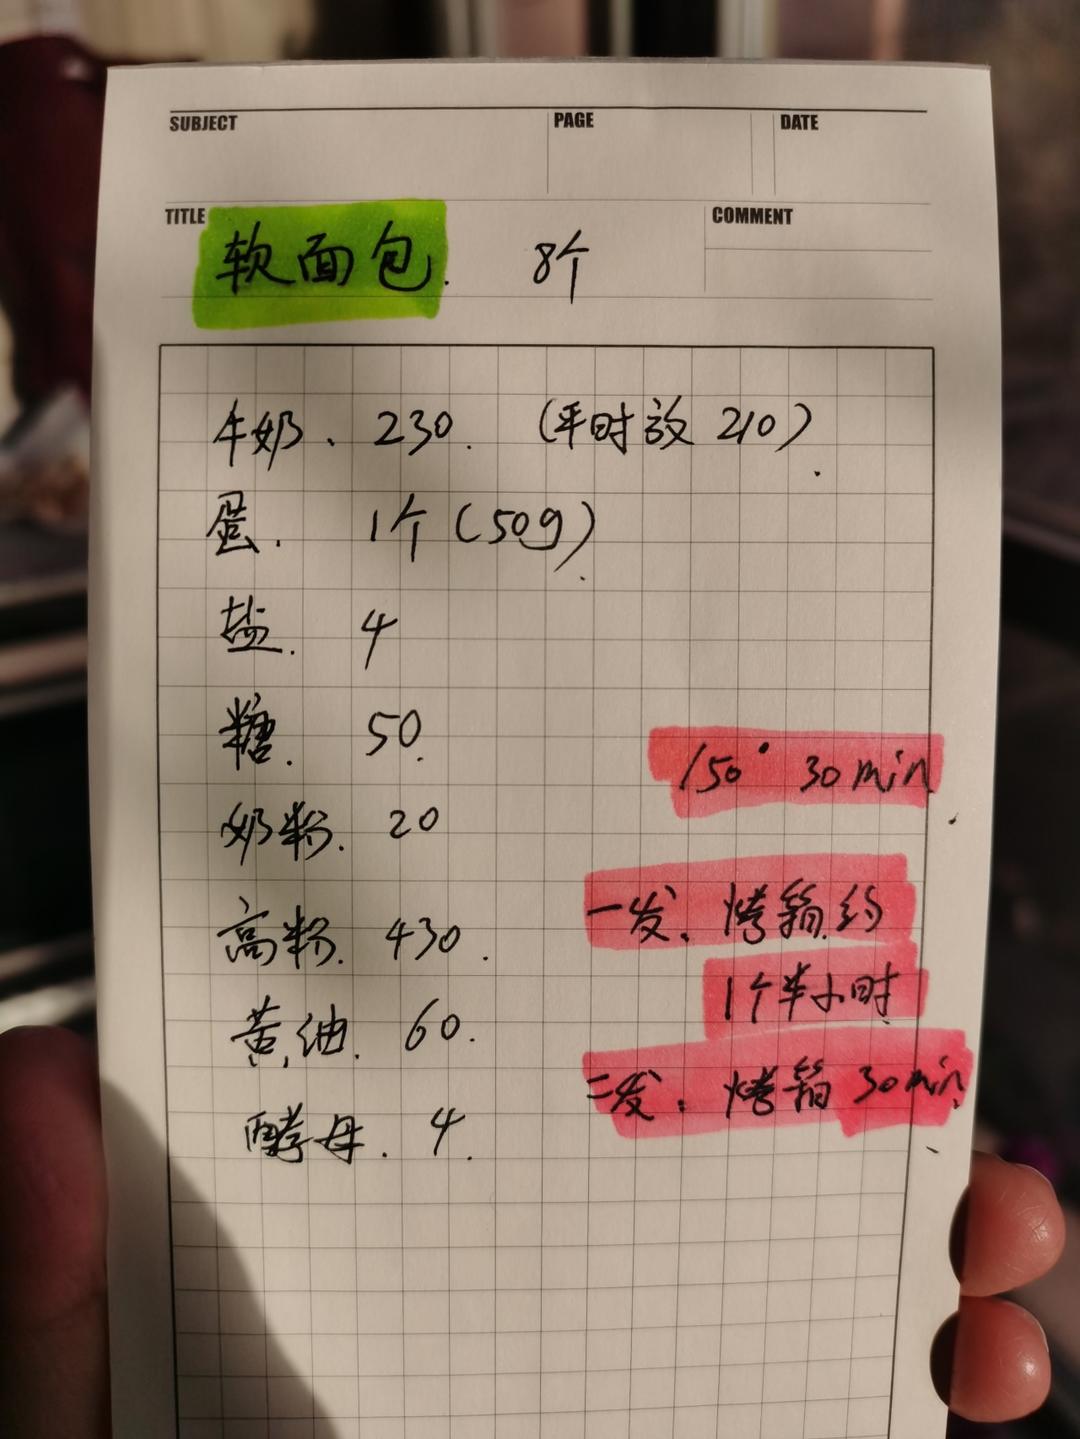 SUBJECT PAGE DATE
TITLE 软面包. 8个 COMMENT
牛奶、230. (平时放210).
蛋. 1个(50g).
盐. 4
糖. 50.
150° 30min
奶粉. 20
一发: 烤箱约
高粉. 430.
1个半小时
黄油. 60.
二发: 烤箱30min
酵母. 4.